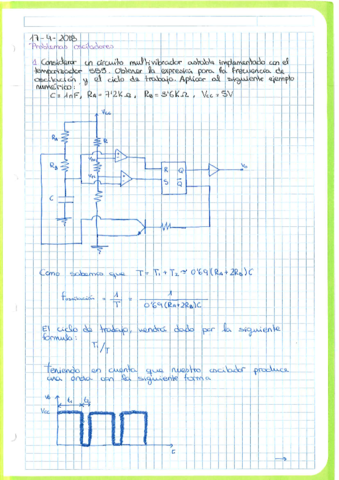 17-4-2018
Problemas osciladores
1. Considerar un circuito multivibrador astable implementado con el
temporizador 555. Obtener la expresión para la frecuencia de
oscilación y el ciclo de trabajo. Aplicar al siguiente ejemplo
numérico:
C = 1nF, RA = 7'2KΩ, RB = 3'6KΩ, Vcc = 5V
Vcc
RA
R
RB
R Q
S Q̄
Vo
C
Como sabemos que T = T1 + T2 ≈ 0'69(RA+2RB)C
= 1/T = 1/0'69(RA+2RB)C
El ciclo de trabajo, vendrá dado por la siguiente
fórmula: T1/T
Teniendo en cuenta que nuestro oscilador produce
una onda con la siguiente forma
Vcc
t1 t2
→